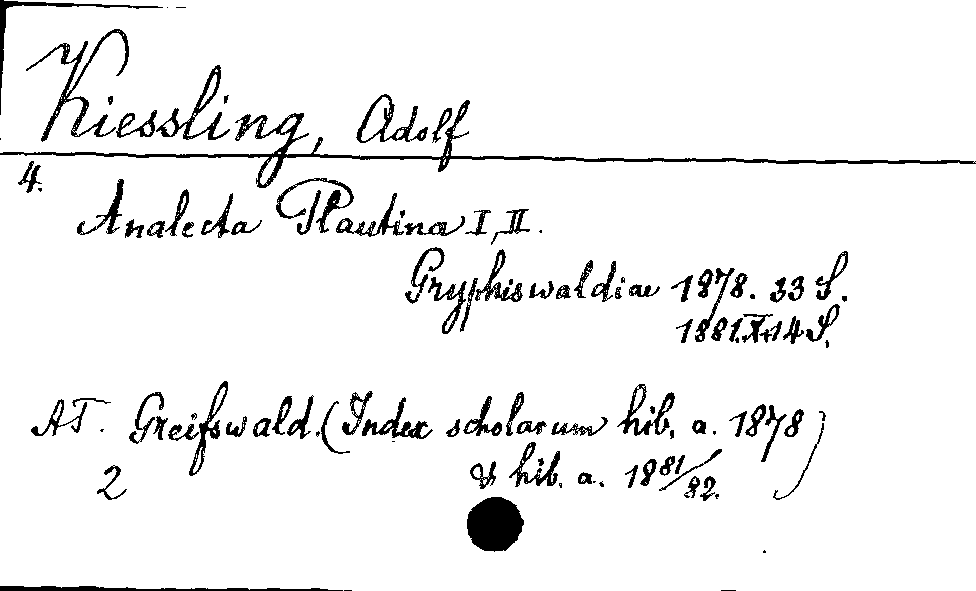 Kiessling, Adolf
4.
Analecta Plautina I, II.
Gryphiswaldiae 1878. 33 S.
1881. 14 S.
AT. Greifswald. (Index scholarum hib. a. 1878
2 & hib. a. 1881/82.)